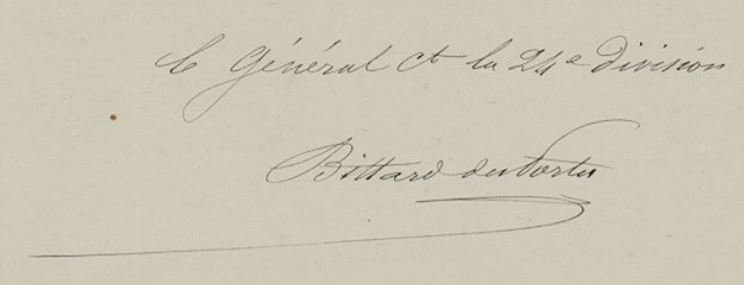 Le Général Ct la 24e division
Bittard des Portes